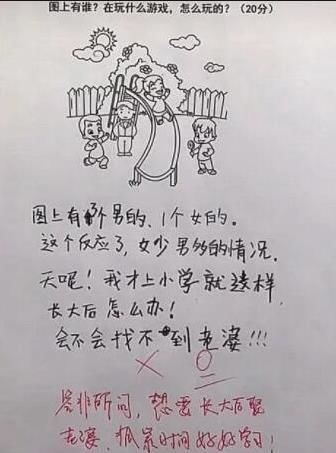 图上有谁？在玩什么游戏，怎么玩的？（20分）
图上有3个男的、1个女的。
这个反应了，女少男多的情况.
天呢！我才上小学就这样，
长大后怎么办！
会不会找不到老婆!!!
× 0
答非所问，想要长大后娶
老婆，抓紧时间好好学习！